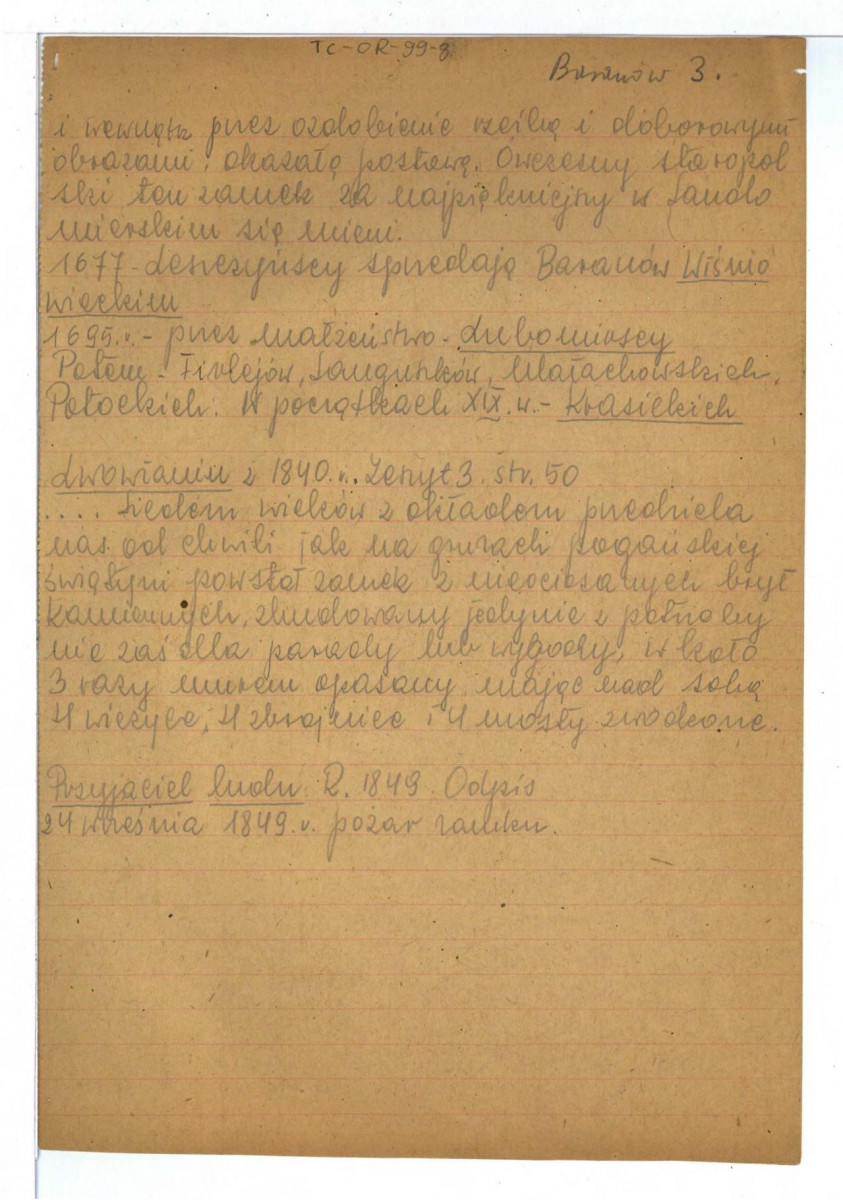 TC-OR-99-3
Baranów 3.
i wewnątrz przez ozdobienie rzeźbą i doborowymi
obrazami, okazałą postawę. Ówczesny staropol
ski ten zamek za najpiękniejszy w Sando
mierskim się mieni.
1677 - Leszczyńscy sprzedają Baranów Wiśnio
wieckim
1695.r.- przez małżeństwo - Lubomirscy
Potem - Firlejów, Sanguszków, Małachowskich,
Potockich. W początkach XIX.w. - Krasickich
Lwowianin z 1840.r. Zeszyt 3. str. 50
.... Siedem wieków z okładem przedziela
nas od chwili jak na gruzach pogańskiej
świątyni powstał zamek z nieociosanych brył
kamiennych, zbudowany jedynie z potrzeby
nie zaś dla parady lub wygody, w koło
3 razy murem opasany, mając nad sobą
4 wieżyce, 4 zbrojnice i 4 mosty zwodzone.
Przyjaciel ludu R. 1849. Odpis
24 września 1849.r. pożar zamku.